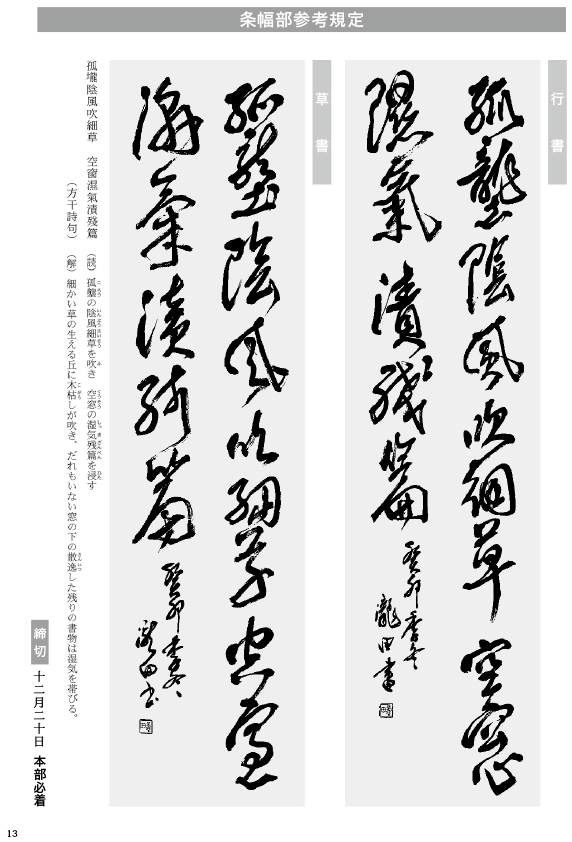 条幅部参考規定
行書
孤壟陰風吹細草空窓
濕氣漬殘篇癸卯季冬
龍田書
草書
孤壟陰風吹細草空窗
濕氣漬殘篇癸卯季冬
龍田書
孤壠陰風吹細草　空窗濕氣漬殘篇
（方干詩句）
（読）孤壟の陰風細草を吹き　空窓の湿気残篇を浸す
（解）細かい草の生える丘に木枯しが吹き、だれもいない窓の下の散逸した残りの書物は湿気を帯びる。
締切　十二月二十日　本部必着
13